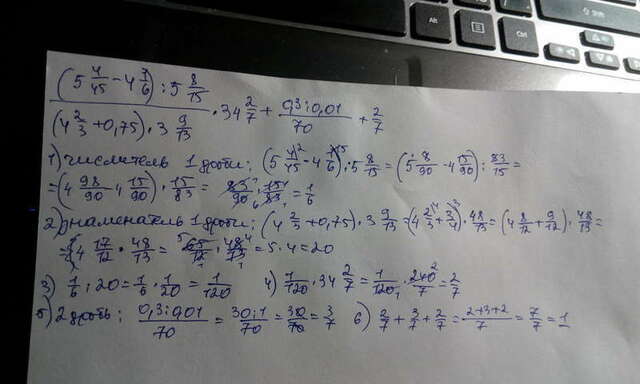 Alt
Ctrl
Shift
(5 4/45 - 4 1/6) : 5 8/15
(4 2/3 + 0,75) · 3 9/13 · 34 2/7 + 0,3 : 0,01 / 70 + 2/7
1) числитель 1 дроби: (5 4/45 - 4 1/6) : 5 8/15 = (5 8/90 - 4 15/90) : 83/15 =
= (4 98/90 - 4 15/90) · 15/83 = 83/90 · 15/83 = 1/6
2) знаменатель 1 дроби: (4 2/3 + 0,75) · 3 9/13 = (4 2/3 + 3/4) · 48/13 = (4 8/12 + 9/12) · 48/13 =
= 4 17/12 · 48/13 = 65/12 · 48/13 = 5 · 4 = 20
3) 1/6 : 20 = 1/6 · 1/20 = 1/120 4) 1/120 · 34 2/7 = 1/120 · 240/7 = 2/7
5) 2 дробь: 0,3 : 0,01 / 70 = 30 : 1 / 70 = 30/70 = 3/7 6) 2/7 + 3/7 + 2/7 = 2+3+2 / 7 = 7/7 = 1